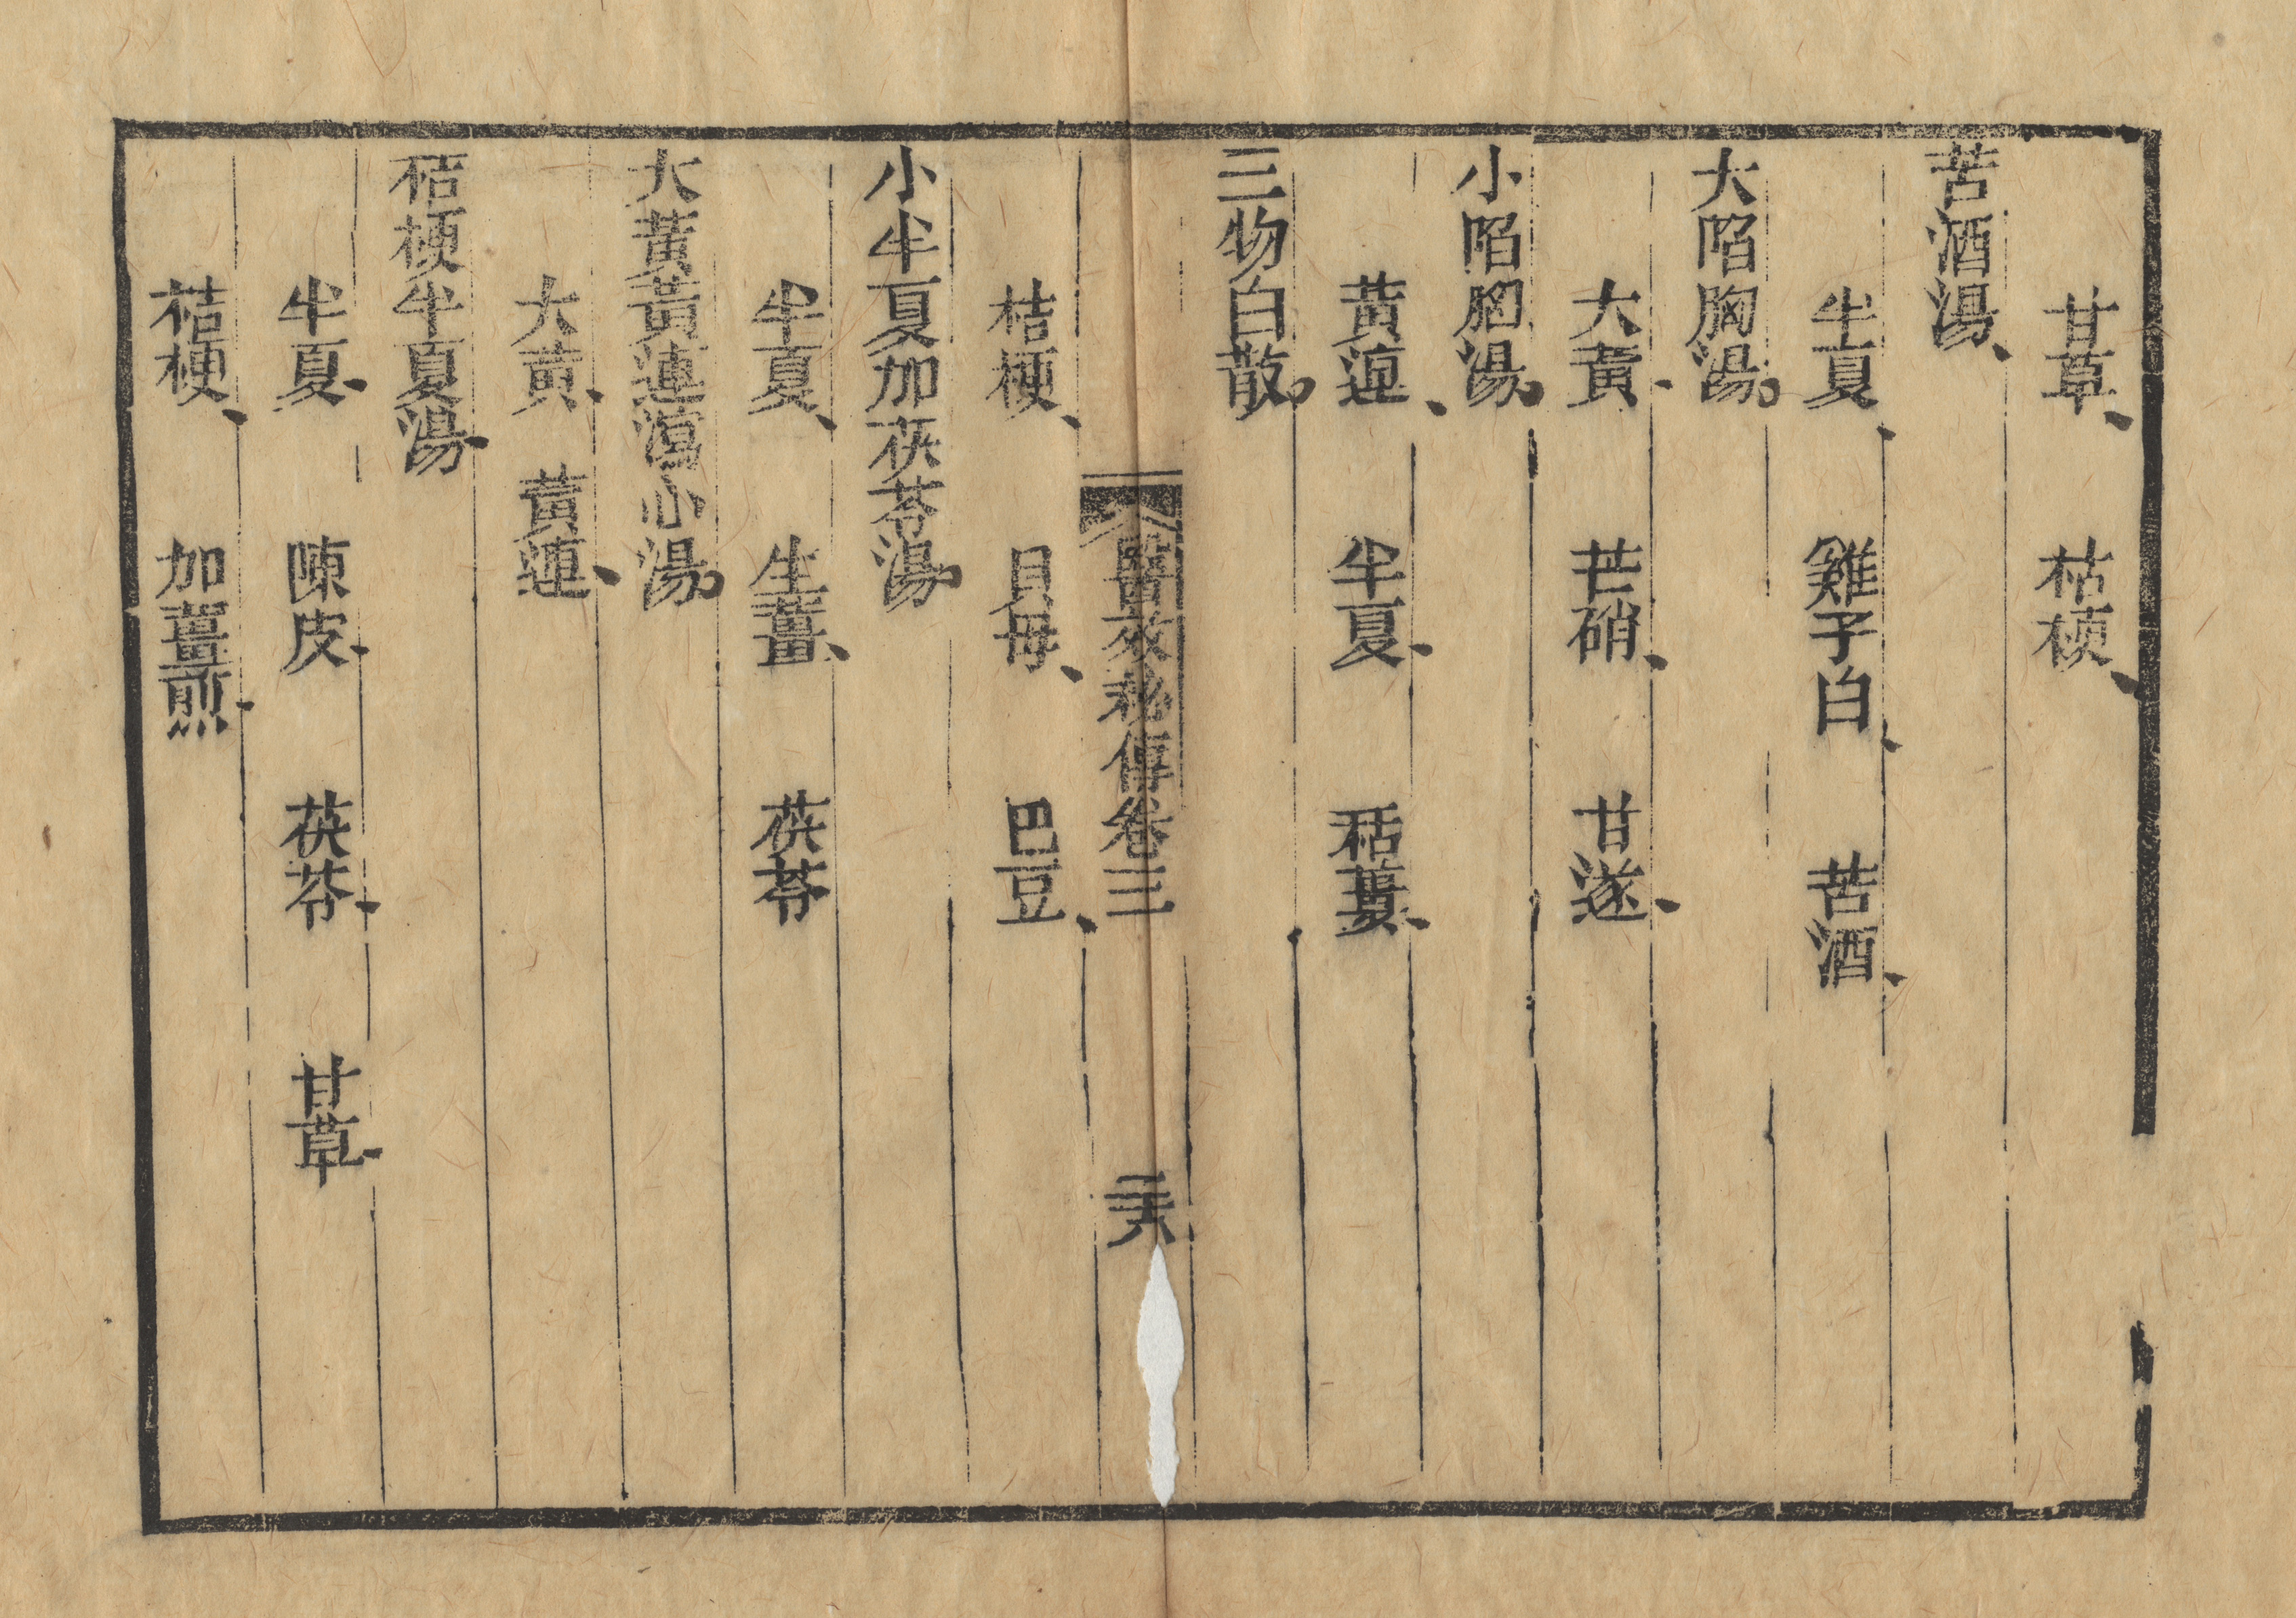 甘草、　枯梗、
苦酒湯、
半夏、　雞子白、　苦酒、
大陷胸湯。
大黃、　芒硝、　甘遂、
小陷胸湯。
黃連、　半夏、　栝蔞、
三物白散。
醫效秘傳卷三　二十六
桔梗、　貝母、　巴豆、
小半夏加茯苓湯。
半夏、　生薑、　茯苓
大黃黃連瀉心湯。
大黃、　黃連、
桔梗半夏湯、
半夏、　陳皮、　茯苓、　甘草、
桔梗、　加薑煎、